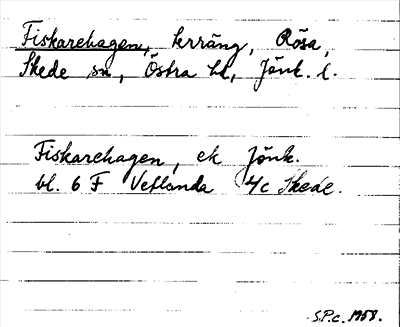 Fiskarehagen, terräng, Rösa,
Skede sn, Östra hd, Jönk. l.
Fiskarehagen, ek Jönk.
bl. 6 F Vetlanda 4/c Skede.
S.P.c. 1958.